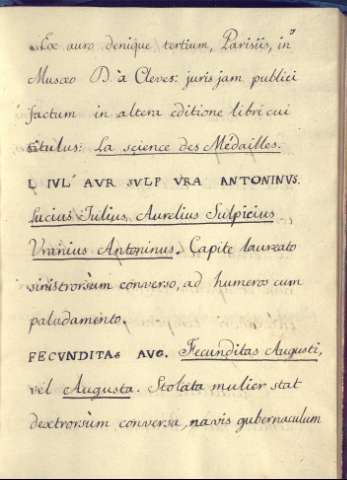 Ex auro denique tertium, Parisiis, in
Musæo D. à Cleves: juris jam publici
factum in altera editione libri cui
titulus: La science des Médailles.
L IVL' AVR SVLP VRA ANTONINVS.
Lucius Julius, Aurelius Sulpicius
Uranius Antoninus. Capite laureato
sinistrorsùm converso, ad humeros cum
paludamento.
FECVNDITAS AVG. Fecunditas Augusti,
vel Augusta. Stolata mulier stat
dextrorsùm conversa, navis gubernaculum